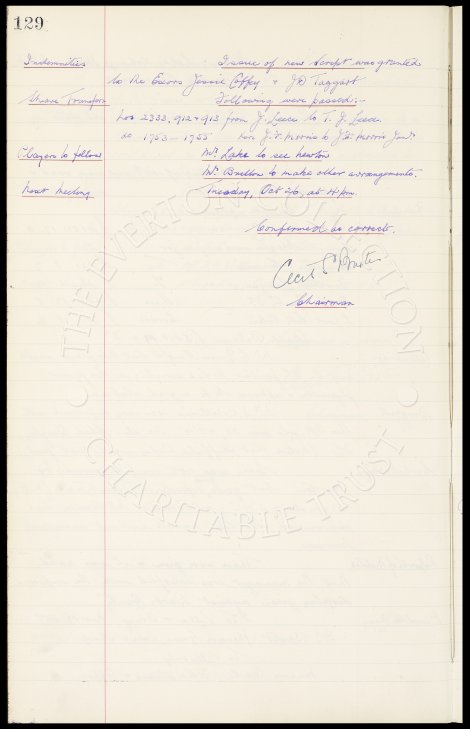 129
Indemnities Issue of new Script was granted
to the Excors Jessie Coffey & J D Taggart
Share Transfers Following were passed:-
Nos 2333, 912 & 913 from J. Leece to T. J. Leece.
do 1753 - 1755 Morris to Morris Junr
Players to follow Mr. Lake to see Newton
Mr. to make other arrangements.
Next Meeting Tuesday, Oct 26, at 4 pm.
Confirmed as correct.
Cecil S
Chairman
THE EVERTON COLLECTION
CHARITABLE TRUST